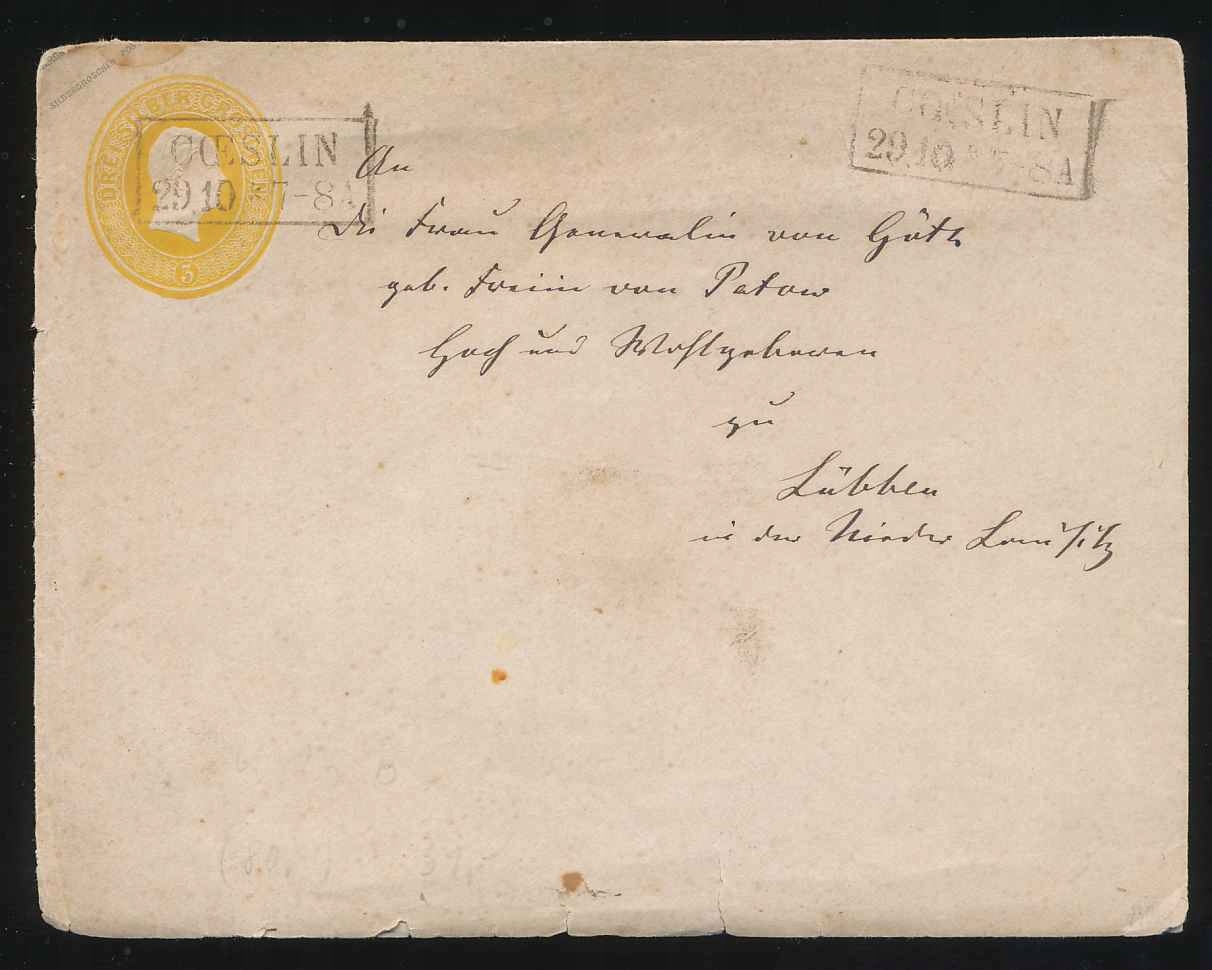 SILBERGROSCHEN
DREI SILBERGROSCHEN
3
CŒSLIN
29 10 * 7-8A
CŒSLIN
29 10 * 7-8A
An
die Frau Generalin von Götz
geb. Freiin von Patow
Hoch und Wohlgeboren
zu
Lübben
in der Nieder Lausitz